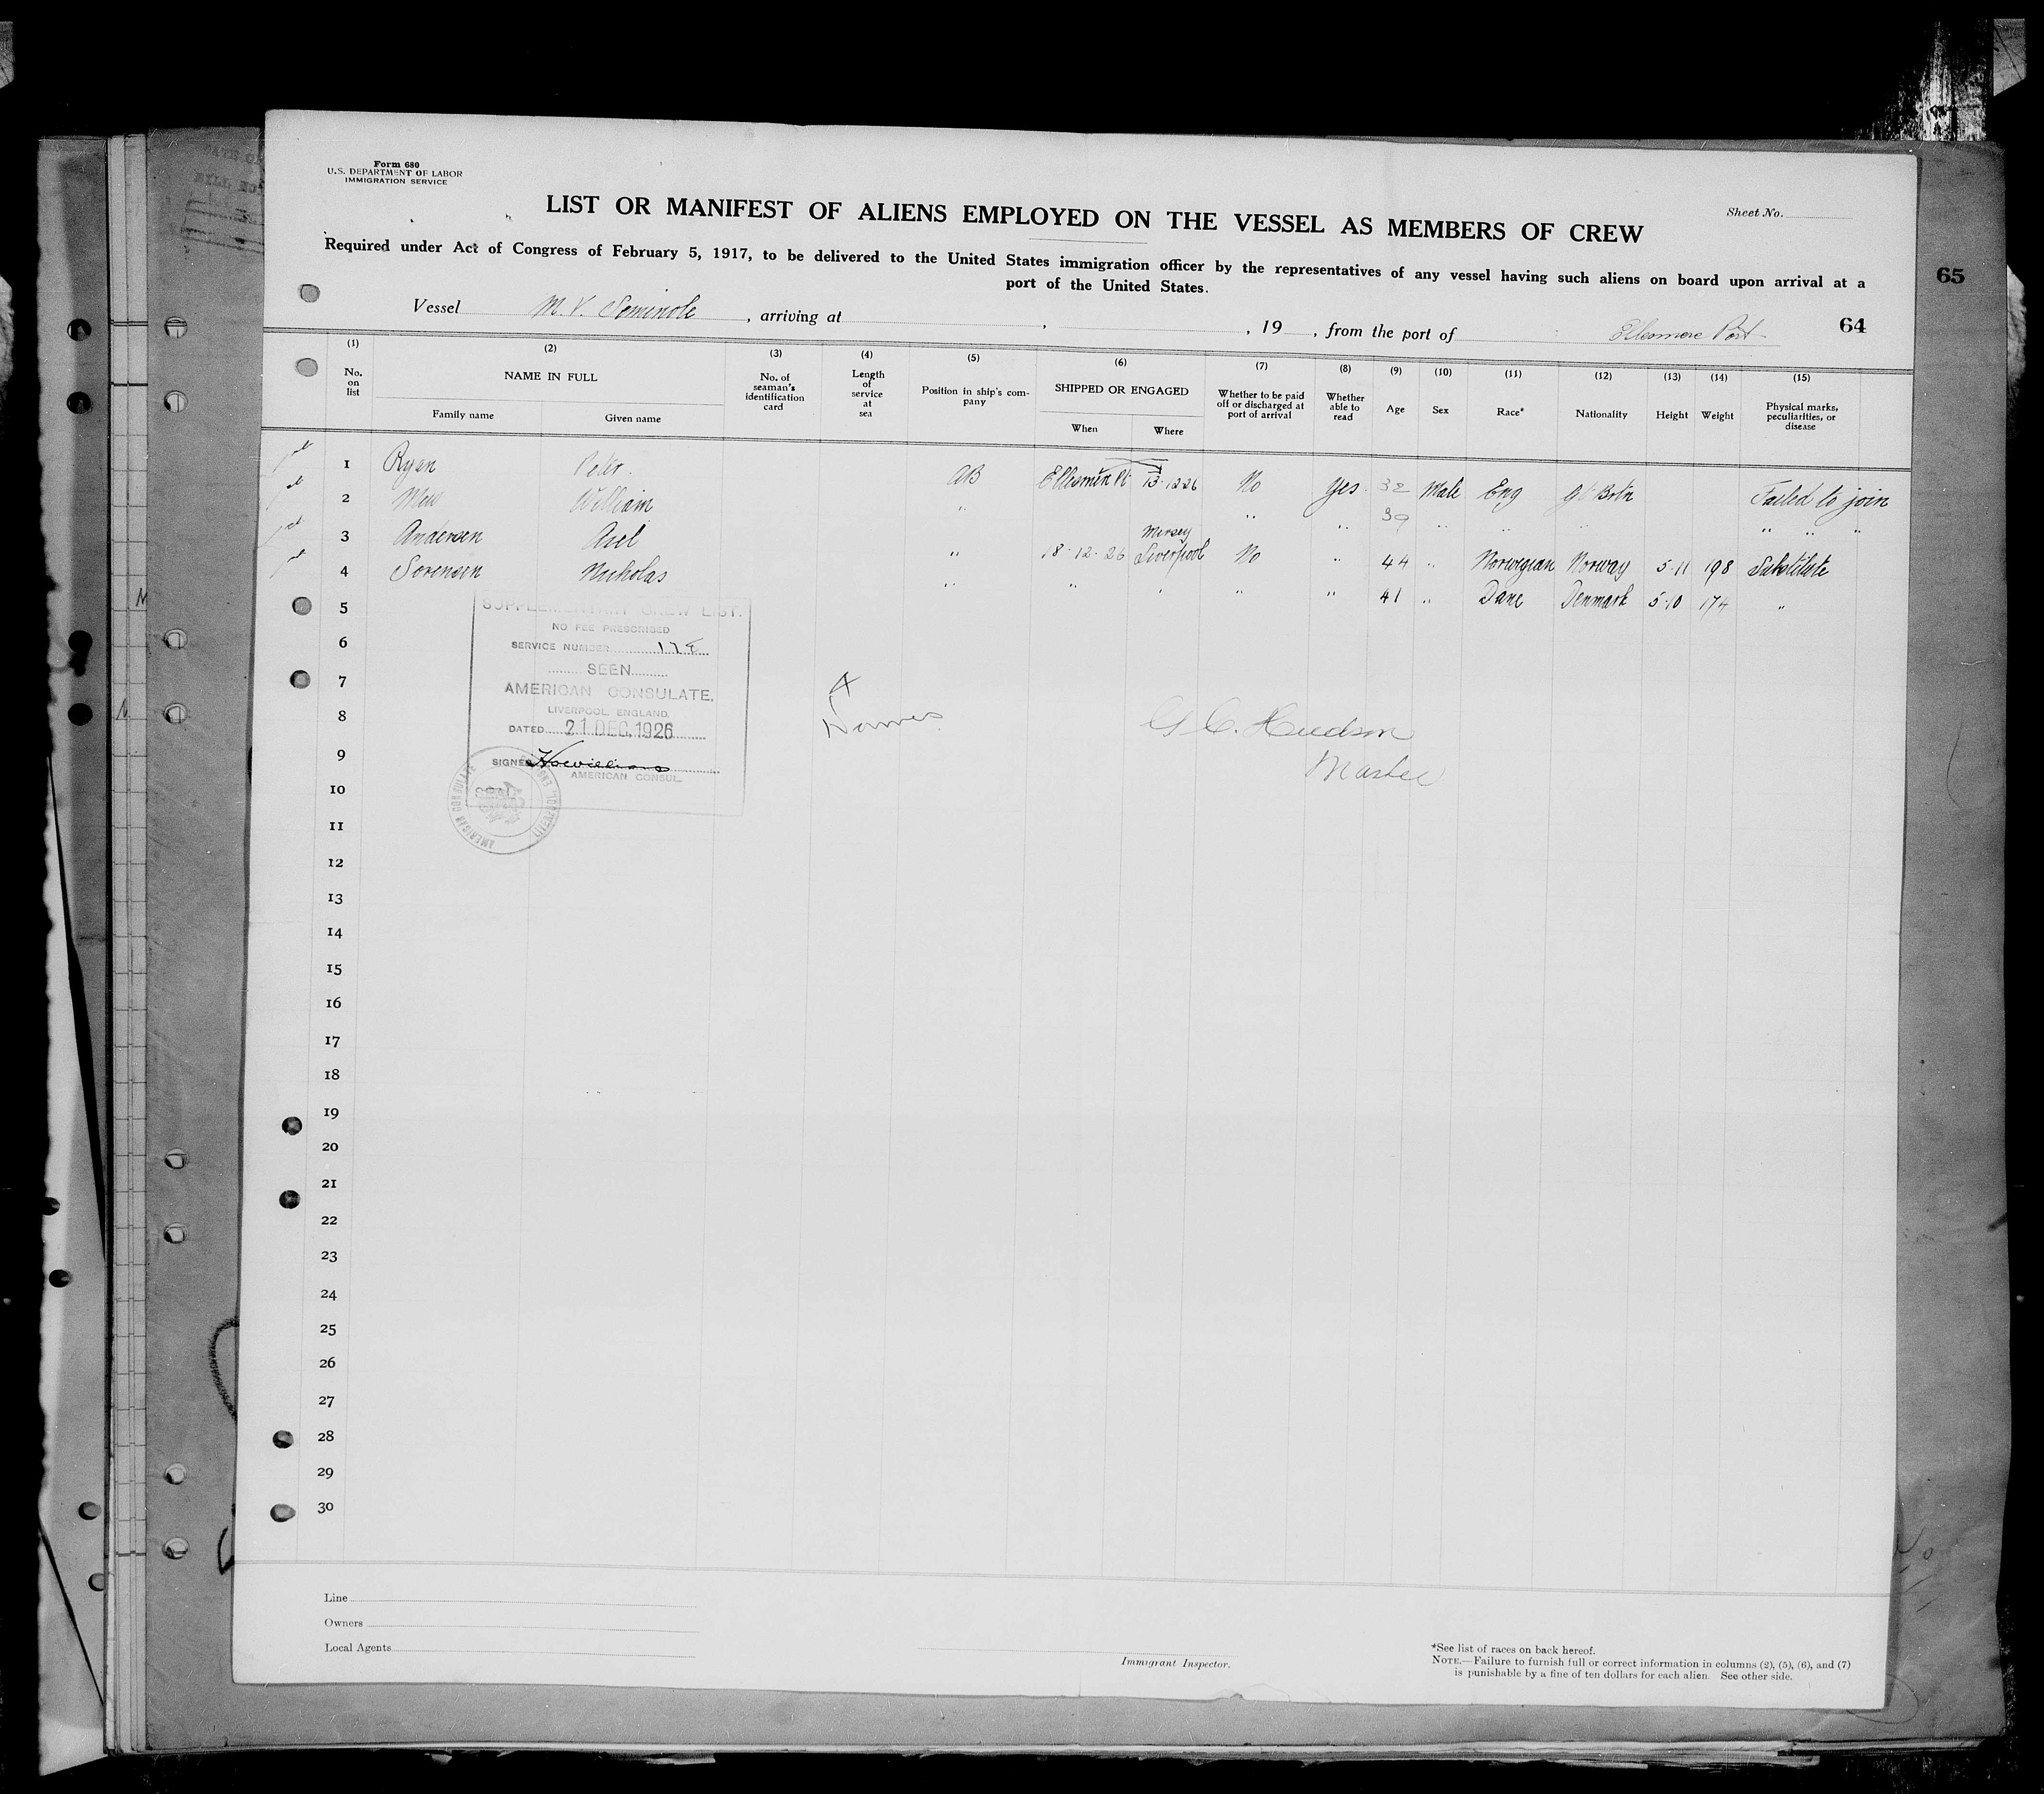 Form 680
U.S. DEPARTMENT OF LABOR
IMMIGRATION SERVICE
LIST OR MANIFEST OF ALIENS EMPLOYED ON THE VESSEL AS MEMBERS OF CREW
Sheet No.
Required under Act of Congress of February 5, 1917, to be delivered to the United States immigration officer by the representatives of any vessel having such aliens on board upon arrival at a
port of the United States.
65
64
Vessel M.V. Seminole, arriving at , , 19 , from the port of Ellesmere Port
(1) (2) (3) (4) (5) (6) (7) (8) (9) (10) (11) (12) (13) (14) (15)
No. on list NAME IN FULL Family name Given name No. of seaman's identification card Length of service at sea Position in ship's company SHIPPED OR ENGAGED When Where Whether to be paid off or discharged at port of arrival Whether able to read Age Sex Race* Nationality Height Weight Physical marks, peculiarities, or disease
1 Ryan Peter. AB Ellesmere Pt 13.12.26 No Yes. 32 Male Eng Gt Brtn Failed to join
2 William " " " 39 " " " " " "
3 Andersen Axel " 18.12.26 Mersey Liverpool No " 44 " Norwegian Norway 5.11 198 Substitute
4 Sorensen Nicholas " " " " " 41 " Dane Denmark 5.10 174 "
5
6
7
8
9
10
11
12
13
14
15
16
17
18
19
20
21
22
23
24
25
26
27
28
29
30
SUPPLEMENTARY CREW LIST.
NO FEE PRESCRIBED
SERVICE NUMBER
SEEN
AMERICAN CONSULATE,
LIVERPOOL ENGLAND.
DATED 21 DEC. 1926
SIGNED
AMERICAN CONSUL.
SEAL
AMERICAN CONSULATE LIVERPOOL, ENGLAND
4
Names
G C. Hudson
Master
Line
Owners
Local Agents
Immigrant Inspector.
*See list of races on back hereof.
NOTE.—Failure to furnish full or correct information in columns (2), (5), (6), and (7)
is punishable by a fine of ten dollars for each alien. See other side.